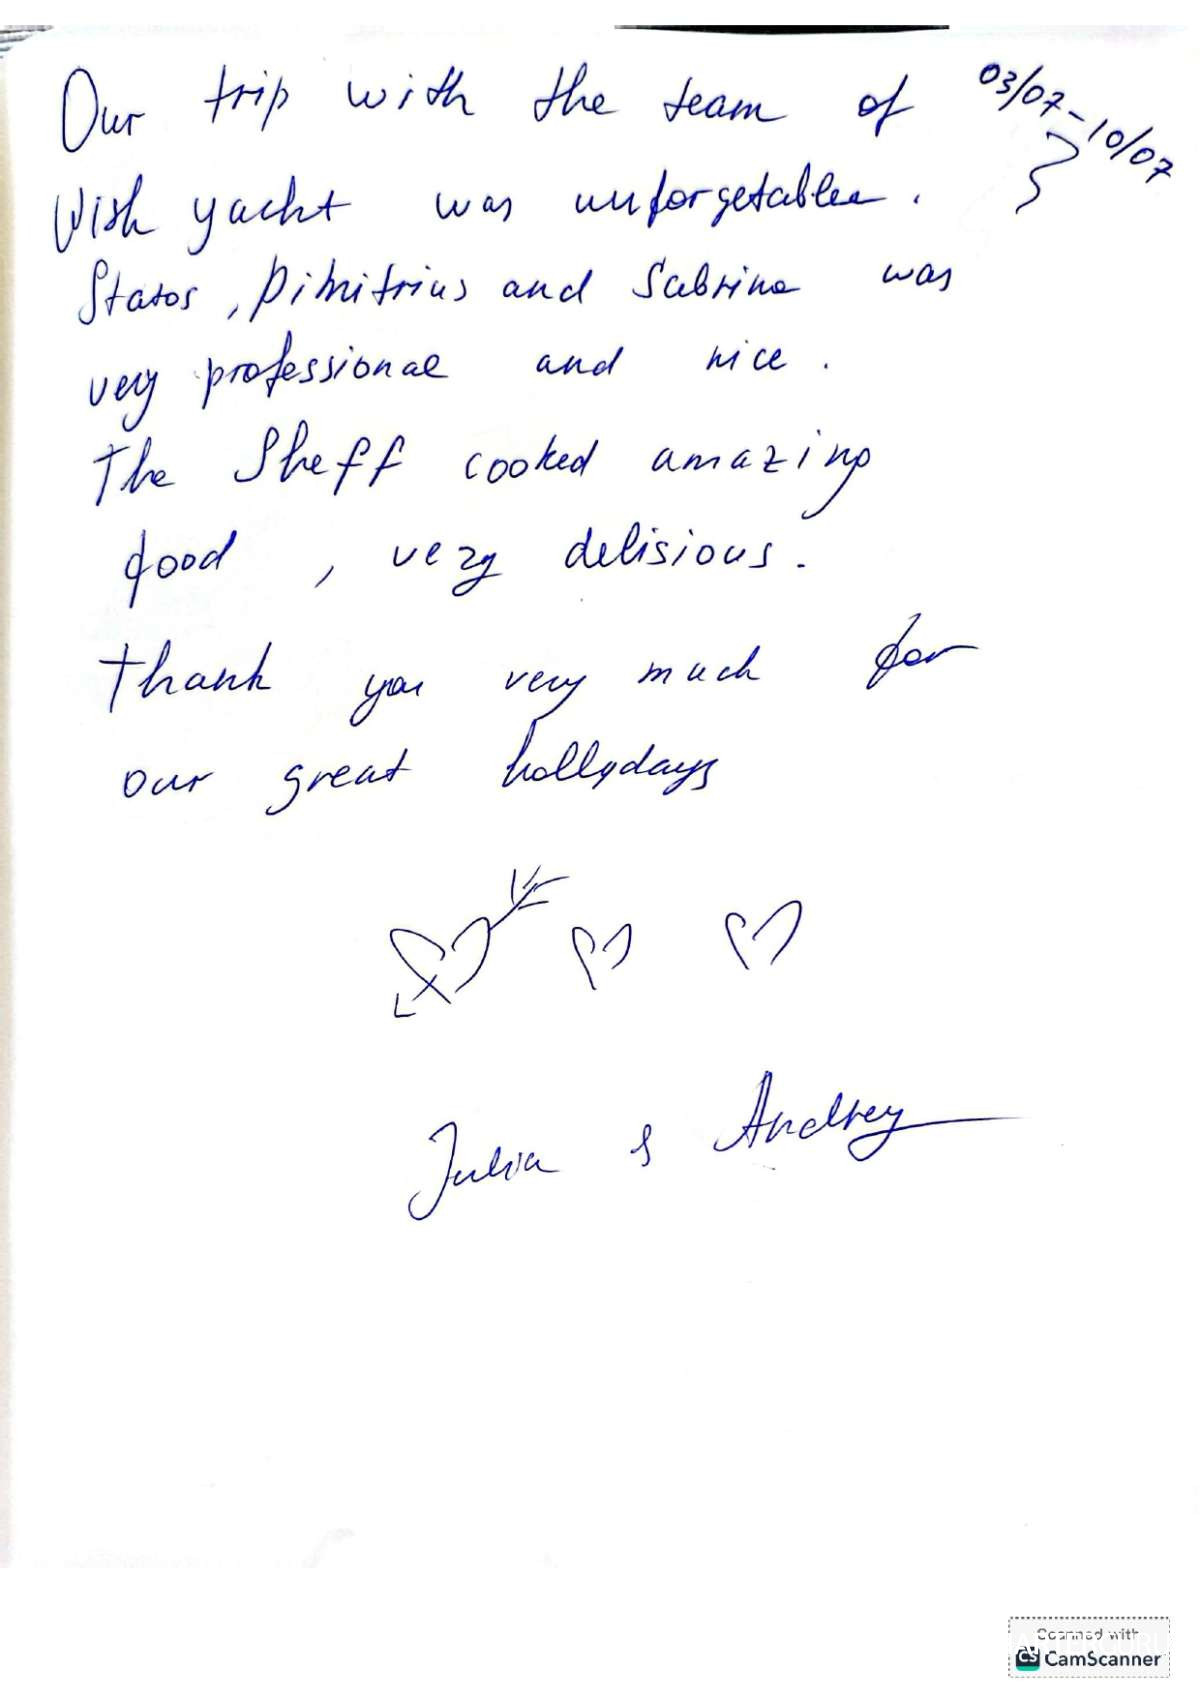 Our trip with the team of 03/07-10/07
Wish yacht was unforgetablee.
Statos, Dimitrius and Sabrina was
very professional and nice.
The Sheff cooked amazing
food, very delisious.
Thank you very much for
our great hollydays
Julia & Andrey
Scanned with
CamScanner